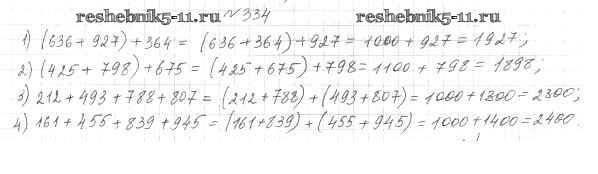 reshebnik5-11.ru №334 reshebnik5-11.ru
1) (636 + 927) + 364 = (636 + 364) + 927 = 1000 + 927 = 1927;
2) (425 + 798) + 675 = (425 + 675) + 798 = 1100 + 798 = 1898;
3) 212 + 493 + 788 + 807 = (212 + 788) + (493 + 807) = 1000 + 1300 = 2300;
4) 161 + 455 + 839 + 945 = (161 + 839) + (455 + 945) = 1000 + 1400 = 2400.